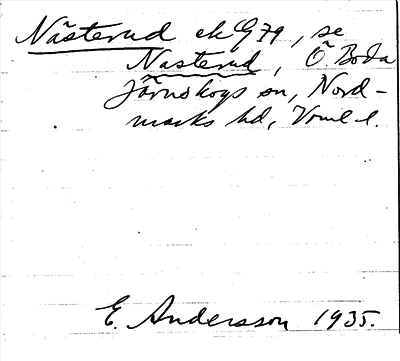 Nästerud ek G79, se
Nasterud, Ö. Boda
Järnskogs sn, Nord-
marks hd, Vrml l.
E. Andersson 1935.